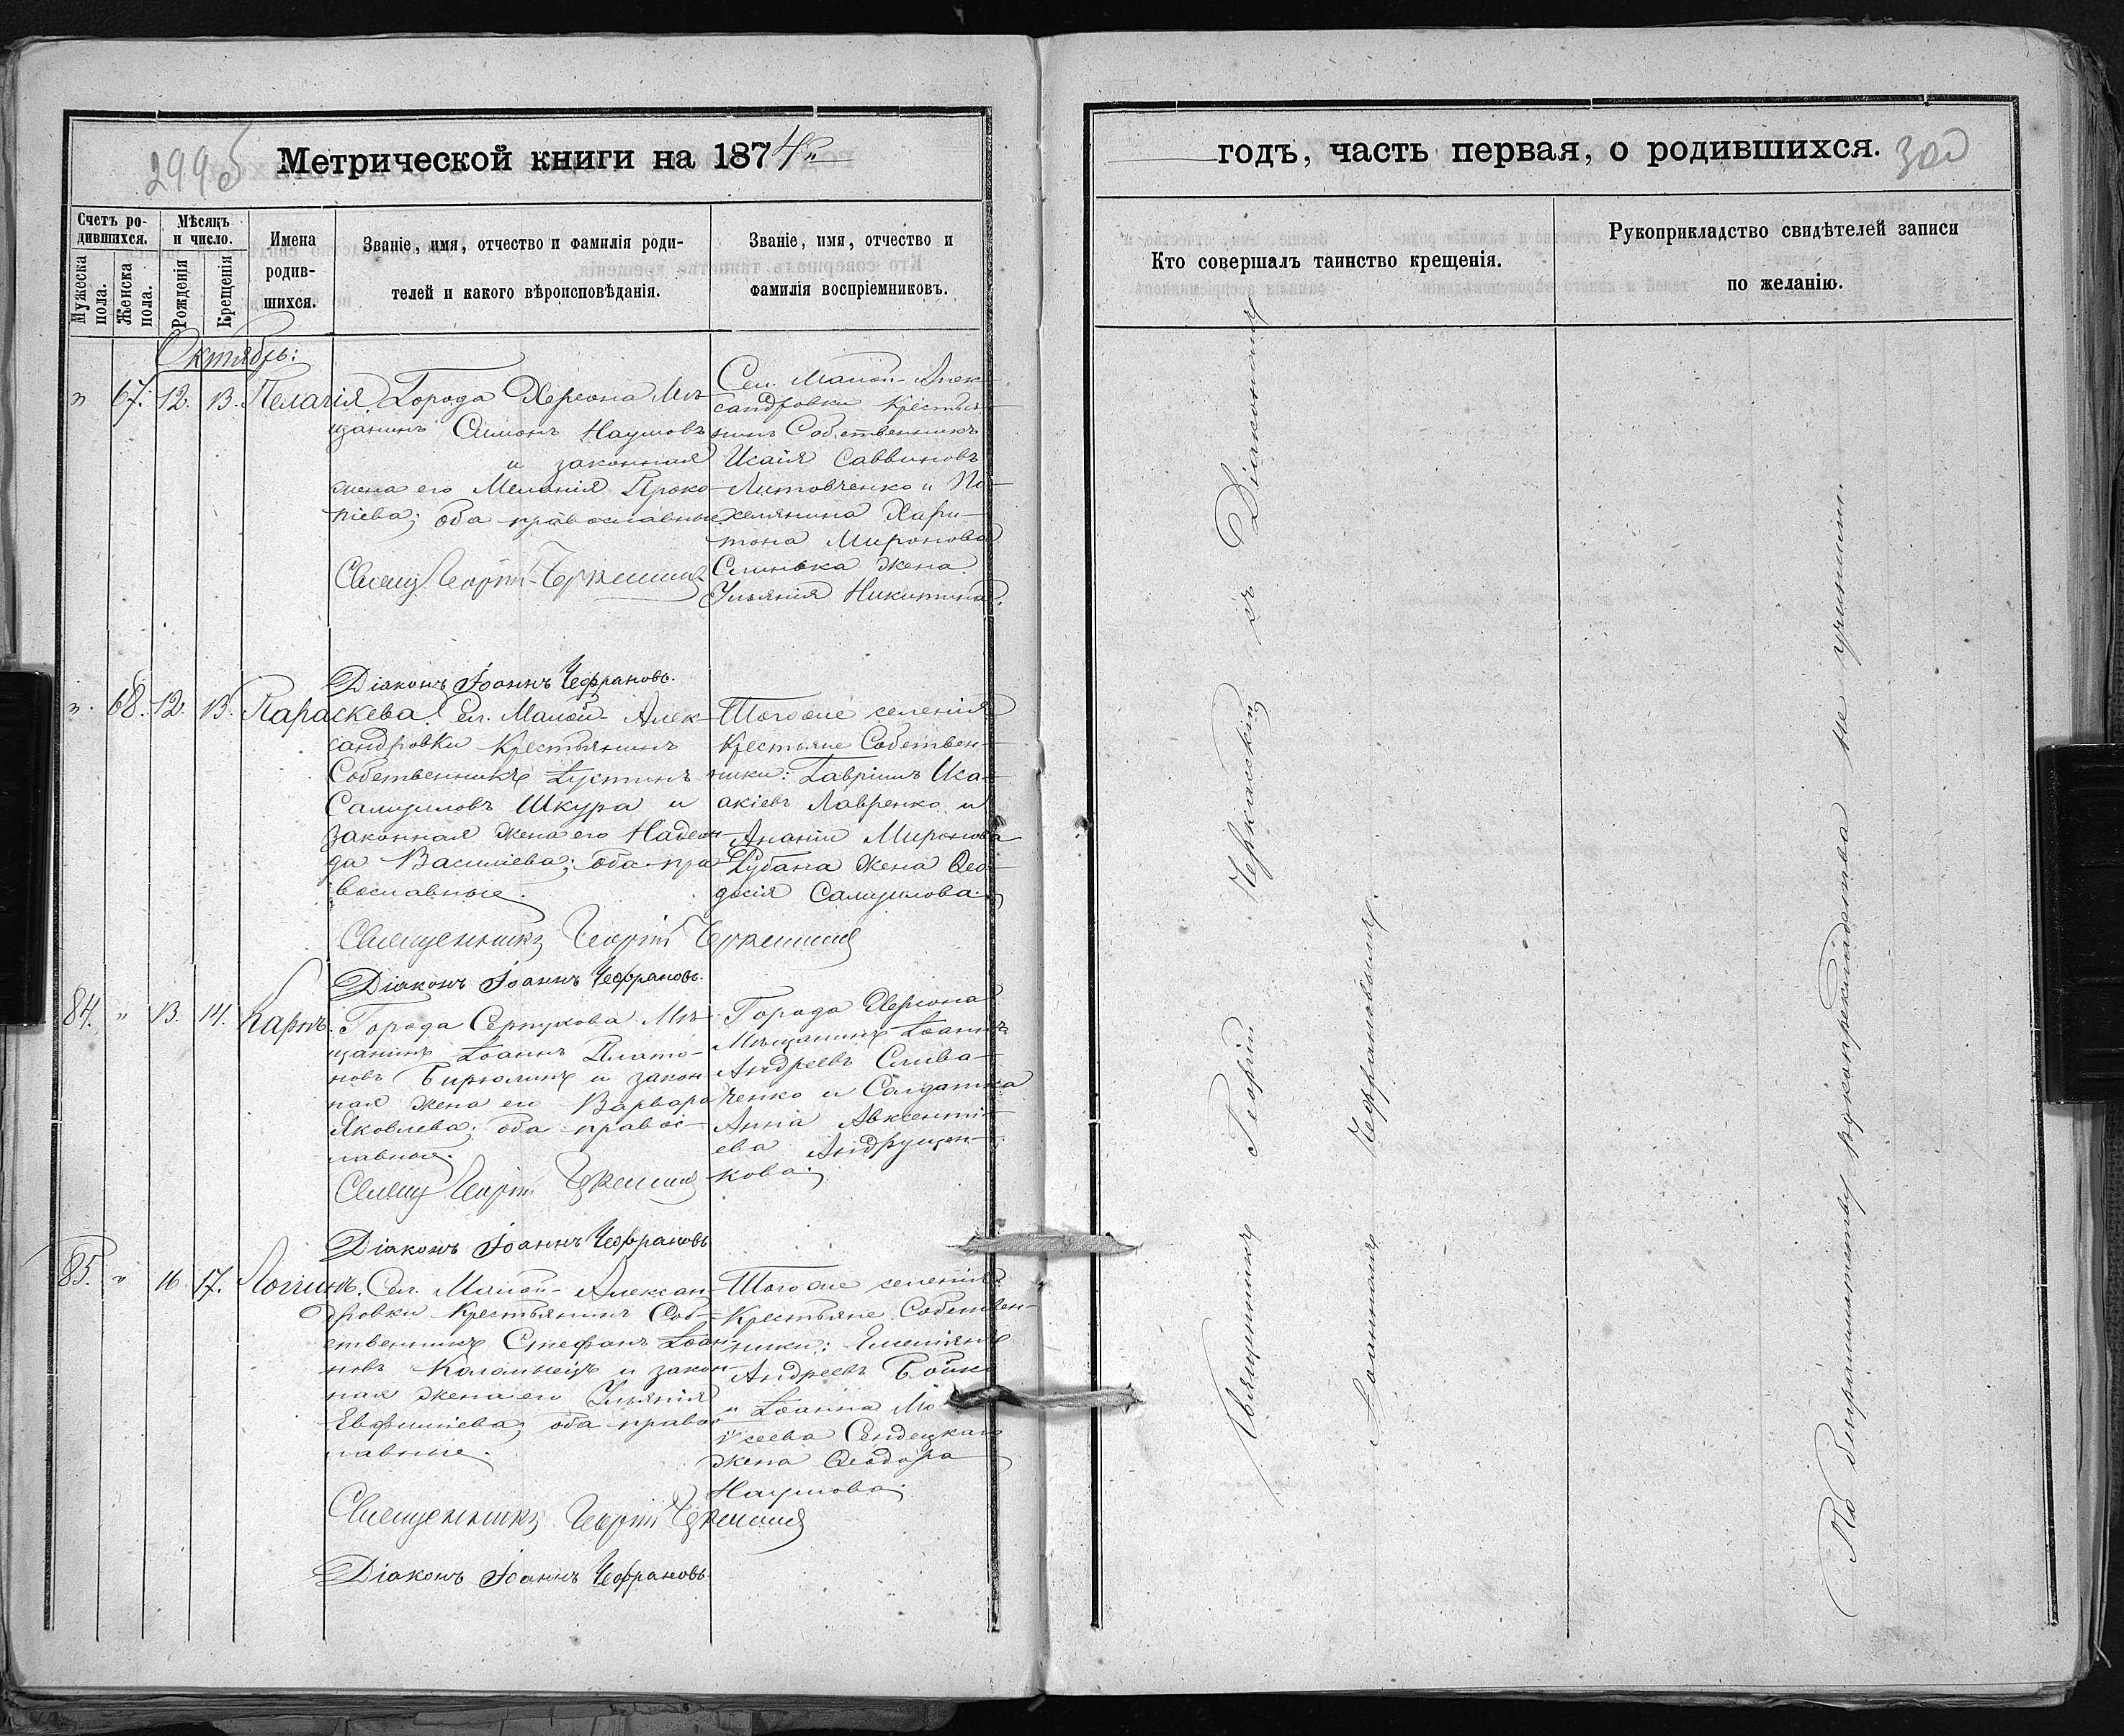 299 б
Метрической книги на 1874 г.
Счетъ ро-
дившихся.
Мужеска
пола.
Женска
пола.
Мѣсяцъ
и число.
Рожденія
Крещенія
Имена
родив-
шихся.
Званіе, имя, отчество и фамилія роди-
телей и какого вѣроисповѣданія.
Званіе, имя, отчество и
фамилія воспріемниковъ.
Октябрь:
" 67. 12. 13. Пелагія.
Города Херсона Мѣ-
щанинъ Симонъ Наумовъ
и законная
жена его Меланія Проко-
піева; оба православные.
Свящ. Георгій Черкасскій
Діаконъ Іоаннъ Чефрановъ.
Сел. Малой-Алек-
сандровки Крестья-
нинъ Собственникъ
Исаія Саввиновъ
Литовченко и По-
селянина Хари-
тона Миронова
жена
Ульянія Никитина.
" 68. 12. 13. Параскева.
Сел. Малой-Алек-
сандровки Крестьянинъ
Собственникъ Іустинъ
Самуиловъ Шкура и
законная жена его Надеж-
да Василіева; оба пра-
вославные.
Священникъ Георгій Черкасскій
Діаконъ Іоаннъ Чефрановъ.
Того же селенія
Крестьяне Собствен-
ники: Гавріилъ Иса-
акіевъ Лавренко и
Ананіи Миронова
Рубана жена Ѳео-
досія Самуилова.
84. " 13. 14. Карпъ.
Города Серпухова Мѣ-
щанинъ Іоаннъ Плато-
новъ Бирюлинъ и закон-
ная жена его Варвара
Яковлева; оба правос-
лавные.
Свящ. Георгій Черкасскій
Діаконъ Іоаннъ Чефрановъ
Города Херсона
Мѣщанинъ Іоаннъ
Андреевъ Слива-
ченко и Солдатка
Анна Авксенті-
ева Андрущен-
кова.
85. " 16. 17. Логинъ.
Сел. Малой-Алексан-
дровки Крестьянинъ Соб-
ственникъ Стефанъ Іоан-
новъ Коломіецъ и закон-
ная жена его Ульянія
Евфиміева; оба правос-
лавные.
Священникъ Георгій Черкасскій
Діаконъ Іоаннъ Чефрановъ
Того же селенія
Крестьяне Собствен-
ники: Емеліянъ
Андреевъ Бойко
и Іоанна Мо-
исеева Сендецкаго
жена Ѳеодора
Наумова.
годъ, часть первая, о родившихся.
300
Кто совершалъ таинство крещенія.
Рукоприкладство свидѣтелей записи
по желанію.
Священникъ Георгій Черкасскій съ Діакономъ
Іоанномъ Чефрановымъ.
По безграмотству рукоприкладства не учинили.